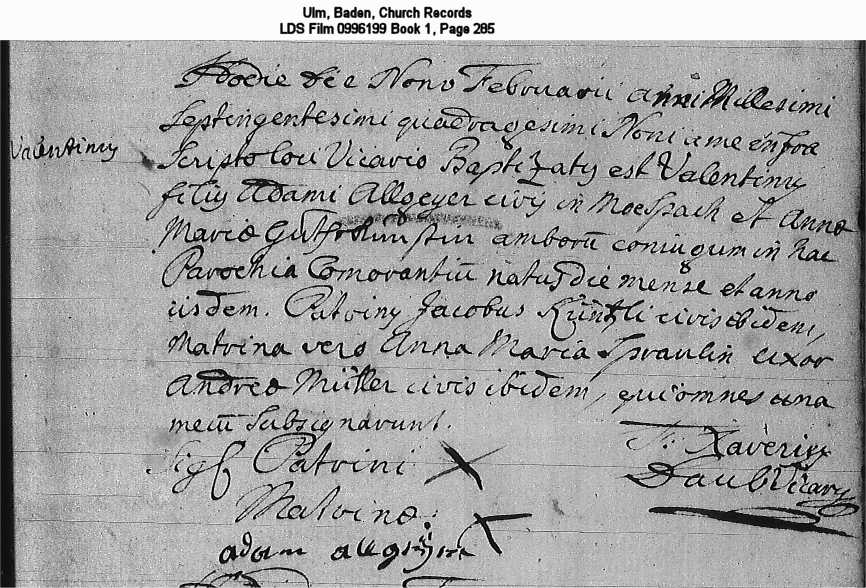 Ulm, Baden, Church Records
LDS Film 0996199 Book 1, Page 285
Hodie die Nono Februarii anni Millesimi
Septingentesimi quadragesimi Noni a me infra
Valentinus
Scripto loci Vicario Baptizatus est Valentinus
filius Adami Allgeyer civis in Moespach et Annæ
Mariæ amborū coniugum in hac
Parochia Comorantiū natus die mense et anno
iisdem. Patrinus Jacobus Küntzli civis ibidem,
Matrina vero Anna Maria Spraulin uxor
Andreæ Müller civis ibidem, qui omnes una
mecū subsignarunt.
Sig Patrini X
F: Xaverius
Daub Vicarius
Matrinæ: X
adam